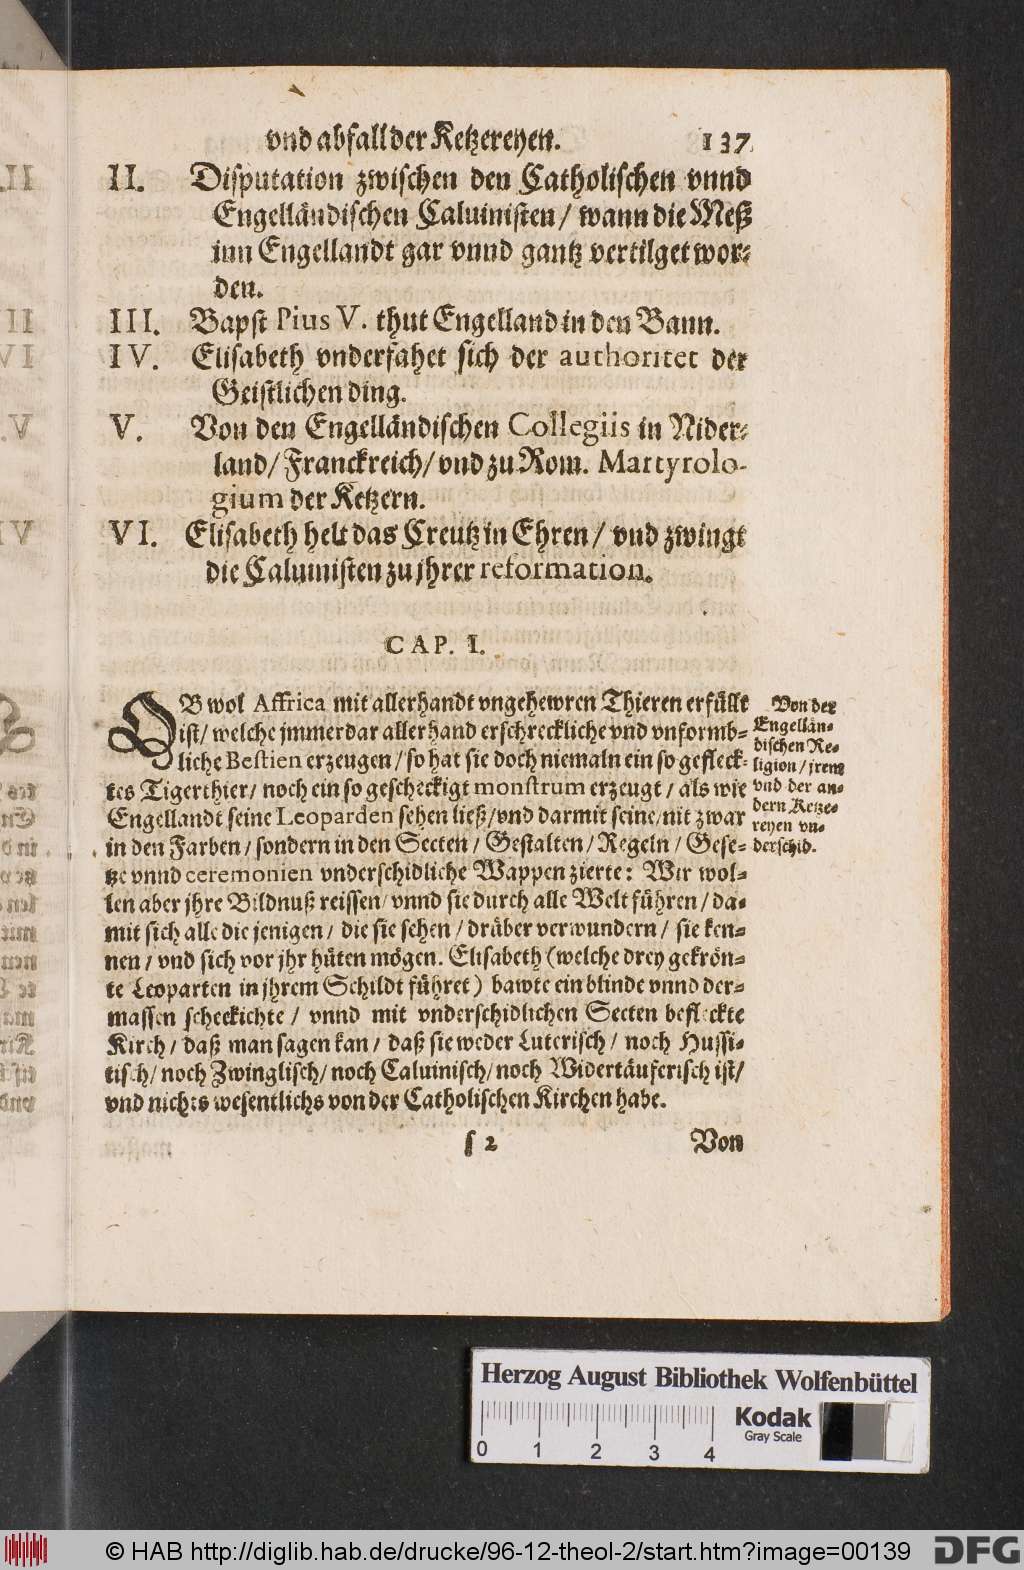 vnd abfall der Ketzereyen. 137
II. Disputation zwischen den Catholischen vnnd
Engelländischen Caluinisten / wann die Meß
inn Engellandt gar vnnd gantz vertilget wor⸗
den.
III. Bapst Pius V. thut Engelland in den Bann.
IV. Elisabeth vnderfahet sich der authoritet der
Geistlichen ding.
V. Von den Engelländischen Collegiis in Nider⸗
land / Franckreich / vnd zu Rom. Martyrolo-
gium der Ketzern.
VI. Elisabeth helt das Creutz in Ehren / vnd zwingt
die Caluinisten zu jhrer reformation.
CAP. I.
OB wol Affrica mit allerhandt vngehewren Thieren erfüllt
ist / welche jmmerdar allerhand erschreckliche vnd vnformb⸗
liche Bestien erzeugen / so hat sie doch niemaln ein so gefleck⸗
tes Tigerthier / noch ein so gescheckigt monstrum erzeugt / als wie
Engellandt seine Leoparden sehen ließ / vnd darmit seine / nit zwar
in den Farben / sondern in den Secten / Gestalten / Regeln / Gese⸗
tze vnnd ceremonien vnderschidliche Wappen zierte: Wir wol⸗
len aber jhre Bildnuß reissen / vnnd sie durch alle Welt führen / da⸗
mit sich alle die jenigen / die sie sehen / drüber verwundern / sie ken⸗
nen / vnd sich vor jhr hüten mögen. Elisabeth (welche drey gekrön⸗
te Leoparten in jhrem Schildt führet) bawte ein blinde vnnd der⸗
massen scheckichte / vnnd mit vnderschidlichen Secten befleckte
Kirch / daß man sagen kan / daß sie weder Luterisch / noch Hussi⸗
tisch / noch Zwinglisch / noch Caluinisch / noch Widertäuferisch ist /
vnd nichts wesentlichs von der Catholischen Kirchen habe.
Von der
Engellän⸗
dischen Re⸗
ligion / jrem
vnd der an⸗
dern Ketze⸗
reyen vn⸗
derschid.
s 2 Von
Herzog August Bibliothek Wolfenbüttel
0 1 2 3 4
Kodak
Gray Scale
© HAB http://diglib.hab.de/drucke/96-12-theol-2/start.htm?image=00139
DFG